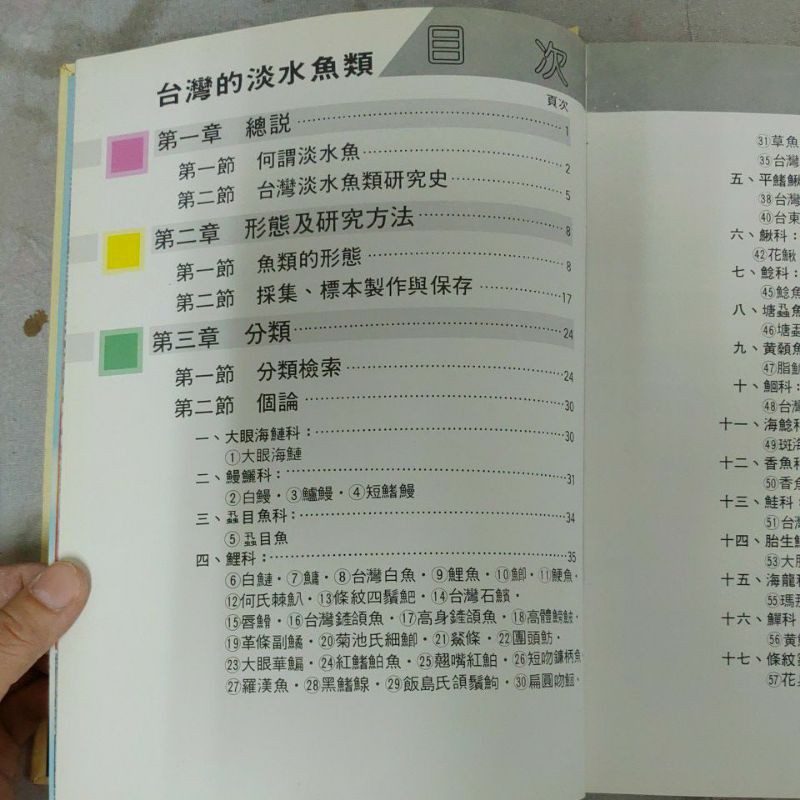 目 次
台灣的淡水魚類
頁次
第一章 總說 1
第一節 何謂淡水魚 2
第二節 台灣淡水魚類研究史 5
第二章 形態及研究方法 8
第一節 魚類的形態 8
第二節 採集、標本製作與保存 17
第三章 分類 24
第一節 分類檢索 24
第二節 個論 30
一、大眼海鰱科： 30
①大眼海鰱
二、鰻鱺科： 31
②白鰻・③鱸鰻・④短鰭鰻
三、虱目魚科： 34
⑤虱目魚
四、鯉科： 35
⑥白鰱・⑦鱅・⑧台灣白魚・⑨鯉魚・⑩鯽・⑪鯁魚・
⑫何氏棘魞・⑬條紋四鬚鲃・⑭台灣石𩼧・
⑮唇䱻・⑯台灣鏟頜魚・⑰高身鏟頜魚・⑱高體鰟鮍・
⑲革條副鱊・⑳菊池氏細鯽・㉑䱗條・㉒團頭魴・
㉓大眼華鯿・㉔紅鰭鮊魚・㉕翹嘴紅鮊・㉖短吻鐮柄魚
㉗羅漢魚・㉘黑鰭線・㉙飯島氏頜鬚鮈・㉚扁圓吻鯝、
㉛草魚
㉟台灣
五、平鰭鰍
㊳台灣
㊵台東
六、鰍科：
㊷花鰍
七、鯰科：
㊺鯰魚
八、塘虱魚
㊻塘虱
九、黃顙魚
㊼脂鮠
十、鮰科：
㊽台灣
十一、海鯰科
㊾斑海
十二、香魚科
㊿香魚
十三、鮭科：
51台灣
十四、胎生鱂
53大肚
十五、海龍科
55瑪
十六、鱓科
56黃
十七、條紋
57花身